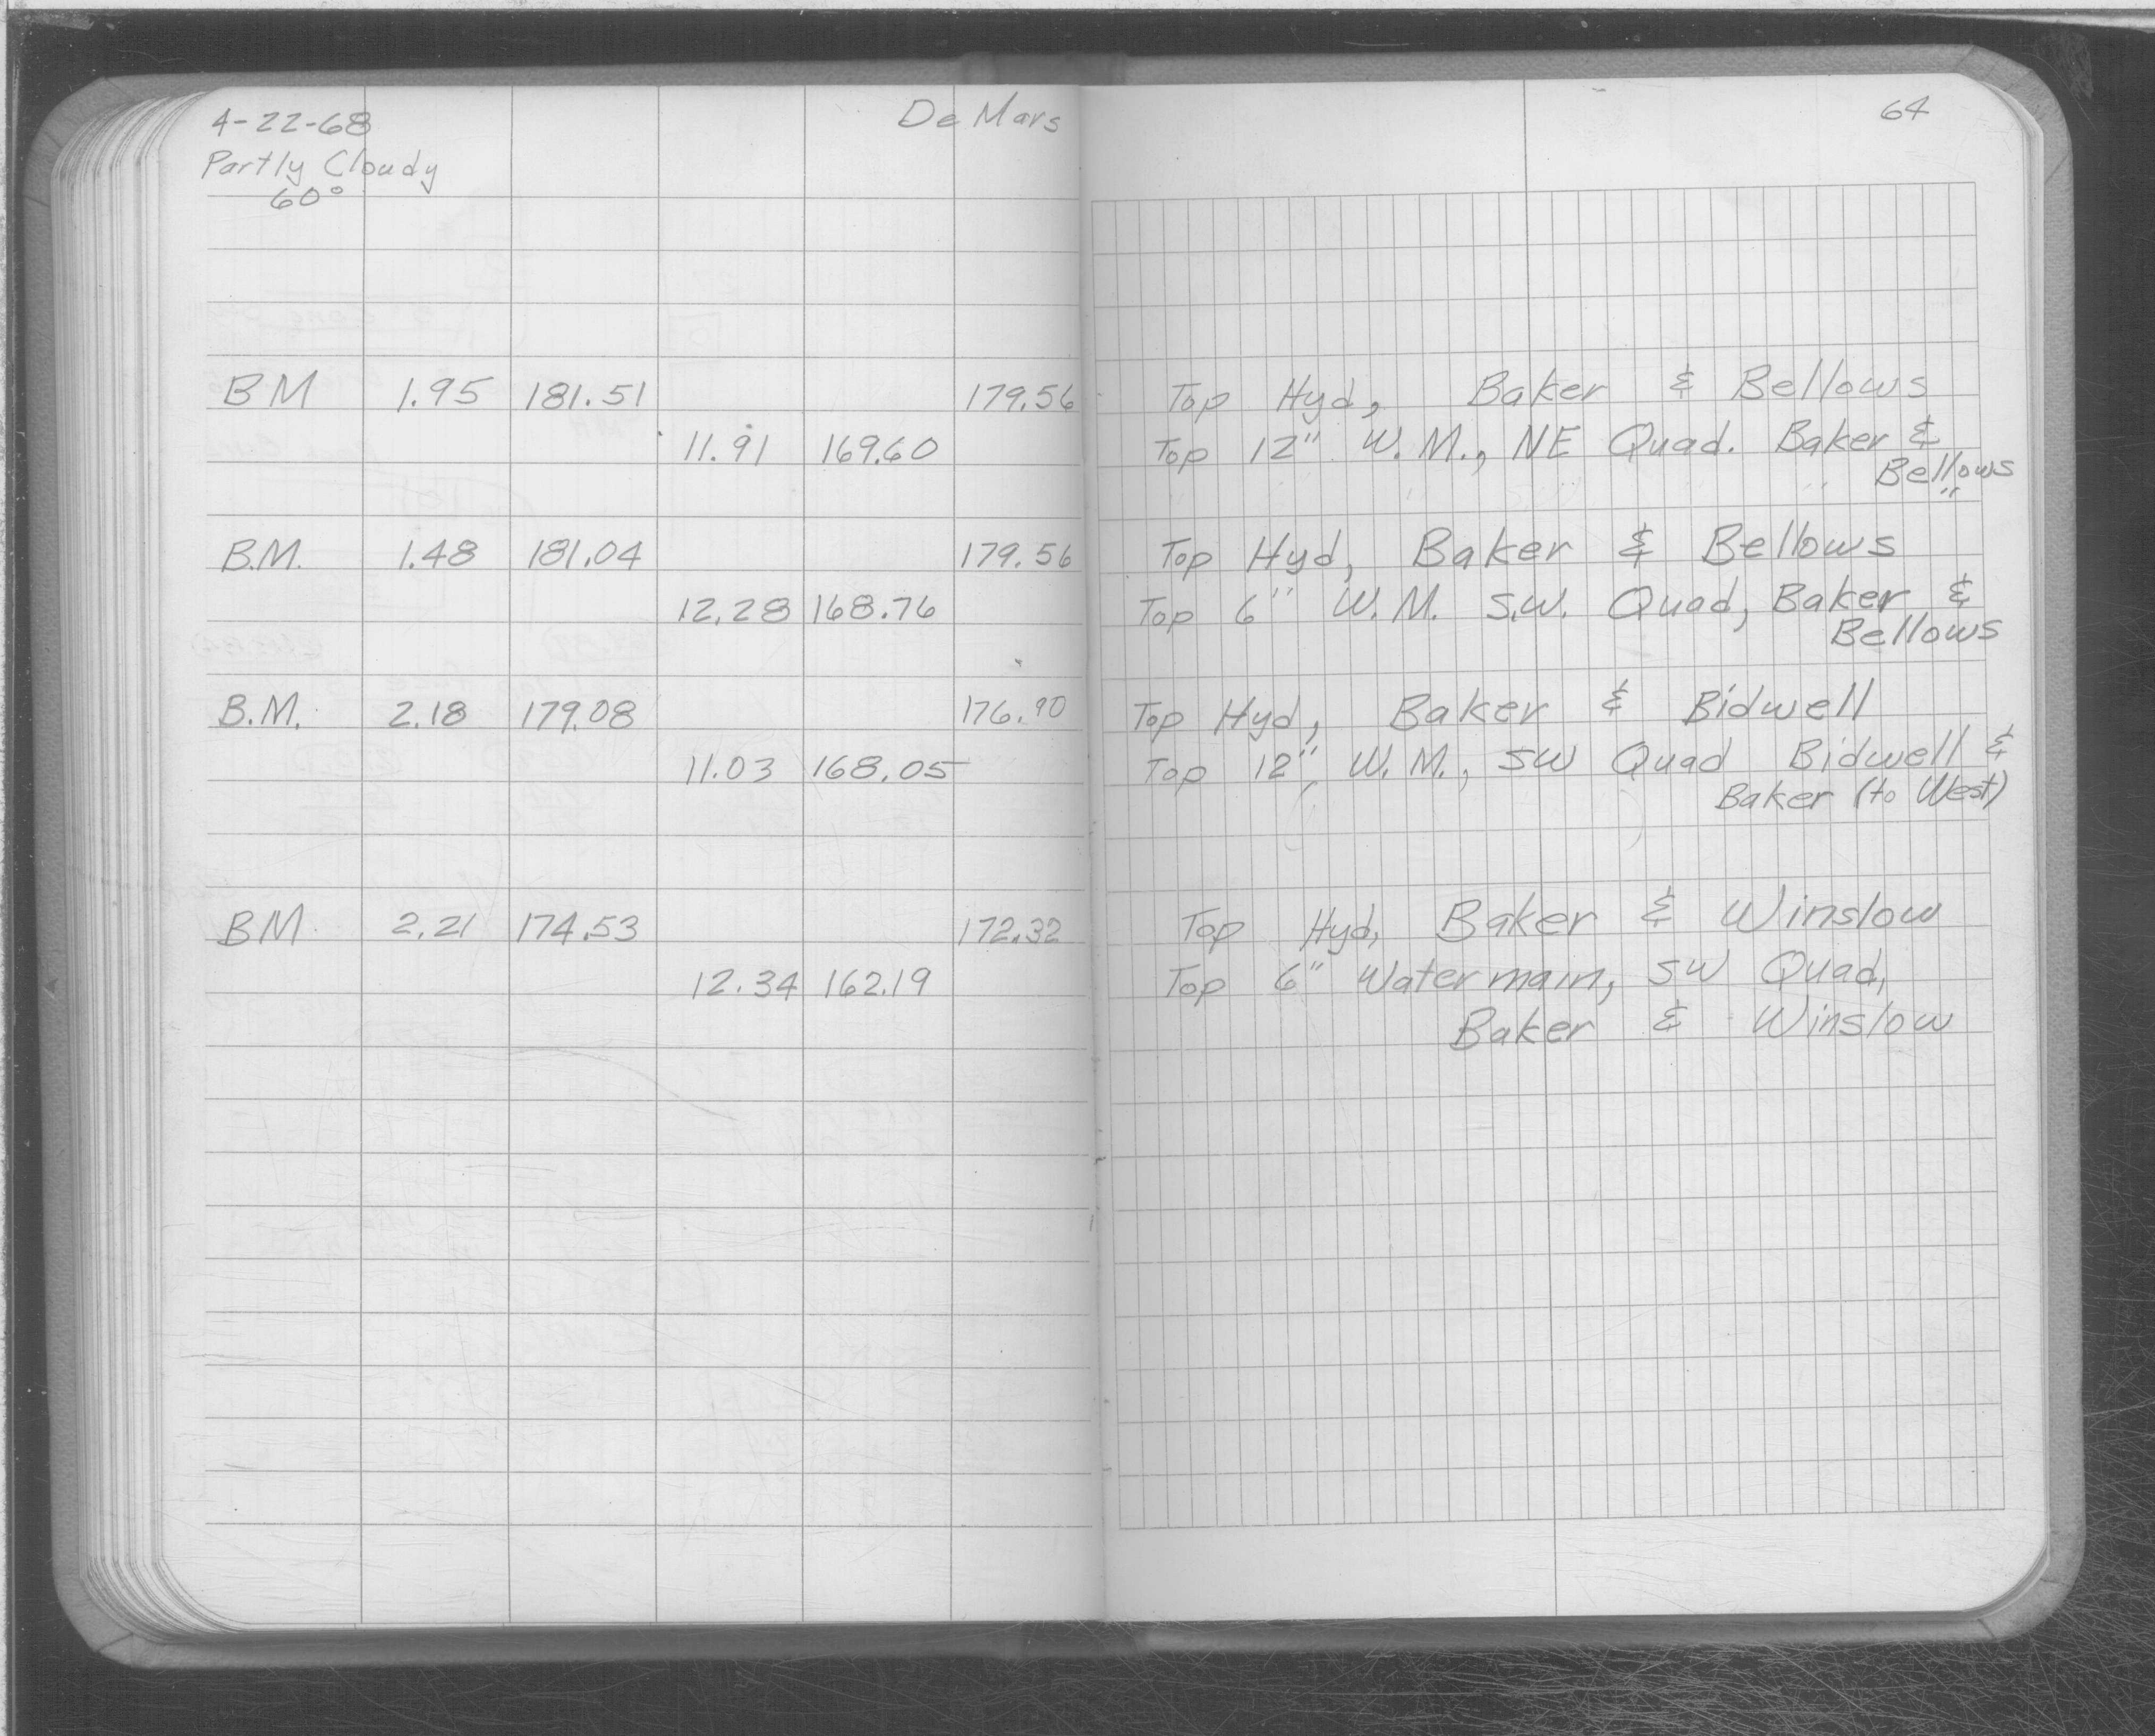 4-22-68 De Mars 64
Partly Cloudy
60°
BM 1.95 181.51 179.56 Top Hyd, Baker & Bellows
11.91 169.60 Top 12" W.M., NE Quad. Baker &
Bellows
B.M. 1.48 181.04 179.56 Top Hyd, Baker & Bellows
12.28 168.76 Top 6" W.M. S.W. Quad, Baker &
Bellows
B.M. 2.18 179.08 176.90 Top Hyd, Baker & Bidwell
11.03 168.05 Top 12" W.M., SW Quad Bidwell &
Baker (to West)
BM 2.21 174.53 172.32 Top Hyd, Baker & Winslow
12.34 162.19 Top 6" Watermain, SW Quad,
Baker & Winslow